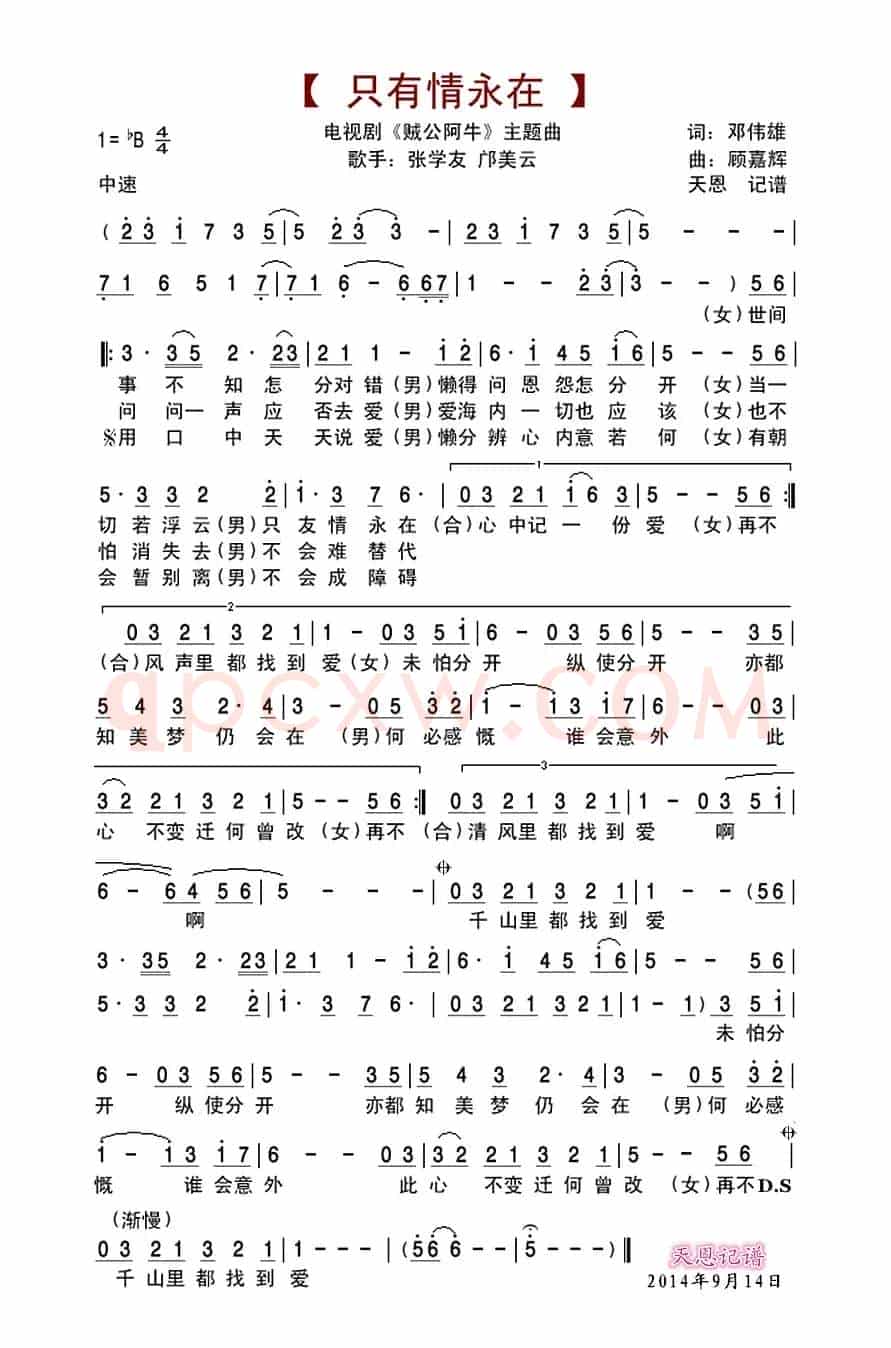 【 只有情永在 】
1= ♭B 4/4 电视剧《贼公阿牛》主题曲 词：邓伟雄
歌手：张学友 邝美云 曲：顾嘉辉
中速 天恩 记谱
( 2 3 i 7 3 5 | 5 5 2 3 3 - | 2 2 3 i 7 3 5 | 5 - - - |
7 1 6 5 1 7 | 7 1 6 - 6 6 7 | 1 - - 2 3 | 3 - - ) 5 6 |
(女)世间
‖: 3 · 3 5 2 · 2 3 | 2 1 1 - i 2 | 6 · i 4 5 i 6 | 5 - - 5 6 |
事 不 知 怎 分对 错(男)懒得 问 恩 怨怎 分 开 (女)当一
问 问一 声 应 否去 爱(男)爱海 内 一 切也 应 该 (女)也不
𝄋用 口 中 天 天说 爱(男)懒分 辨 心 内意 若 何 (女)有朝
1
5 · 3 3 2 2 | i · 3 7 6 · | 0 3 2 1 i 6 3 | 5 - - 5 6 :‖
切 若 浮 云(男)只 友 情 永 在(合)心 中记 一 份 爱 (女)再不
怕 消 失 去(男)不 会 难 替 代
会 暂 别 离(男)不 会 成 障 碍
2
0 3 2 1 3 2 1 | 1 - 0 3 5 i | 6 - 0 3 5 6 | 5 - - 3 5 |
(合)风 声里 都 找 到 爱(女)未 怕分 开 纵 使分 开 亦都
5 4 3 2 · 4 | 3 - 0 5 3 2 | i - i 3 i 7 | 6 - - 0 3 |
知 美 梦 仍 会 在 (男)何 必感 慨 谁 会意 外 此
3 2 2 1 3 2 1 | 5 - - 5 6 :‖ 0 3 2 1 3 2 1 | 1 - 0 3 5 i |
3
心 不变 迁 何 曾 改 (女)再不 (合)清 风里 都 找 到 爱 啊
6 - 6 4 5 6 | 5 - - - | 0 3 2 1 3 2 1 | 1 - - (5 6 |
啊 千 山里 都 找 到 爱
3 · 3 5 2 · 2 3 | 2 1 1 - i 2 | 6 · i 4 5 i 6 | 5 - - 5 6 |
5 · 3 3 2 2 | i · 3 7 6 · | 0 3 2 1 3 2 1 | 1 - 1 ) 3 5 i |
未 怕分
6 - 0 3 5 6 | 5 - - 3 5 | 5 4 3 2 · 4 | 3 - 0 5 3 2 |
开 纵 使分 开 亦都 知 美 梦 仍 会 在 (男)何 必感
i - i 3 i 7 | 6 - - 0 3 | 3 2 2 1 3 2 1 | 5 - - 5 6 |
慨 谁 会意 外 此 心 不变 迁 何 曾 改 (女)再不 D.S
(渐慢)
0 3 2 1 3 2 1 | 1 - - ( 5 6 | 6 6 5 - - ) ‖
千 山 里 都 找 到 爱
天恩记谱
2014年9月14日
qpcxw.com